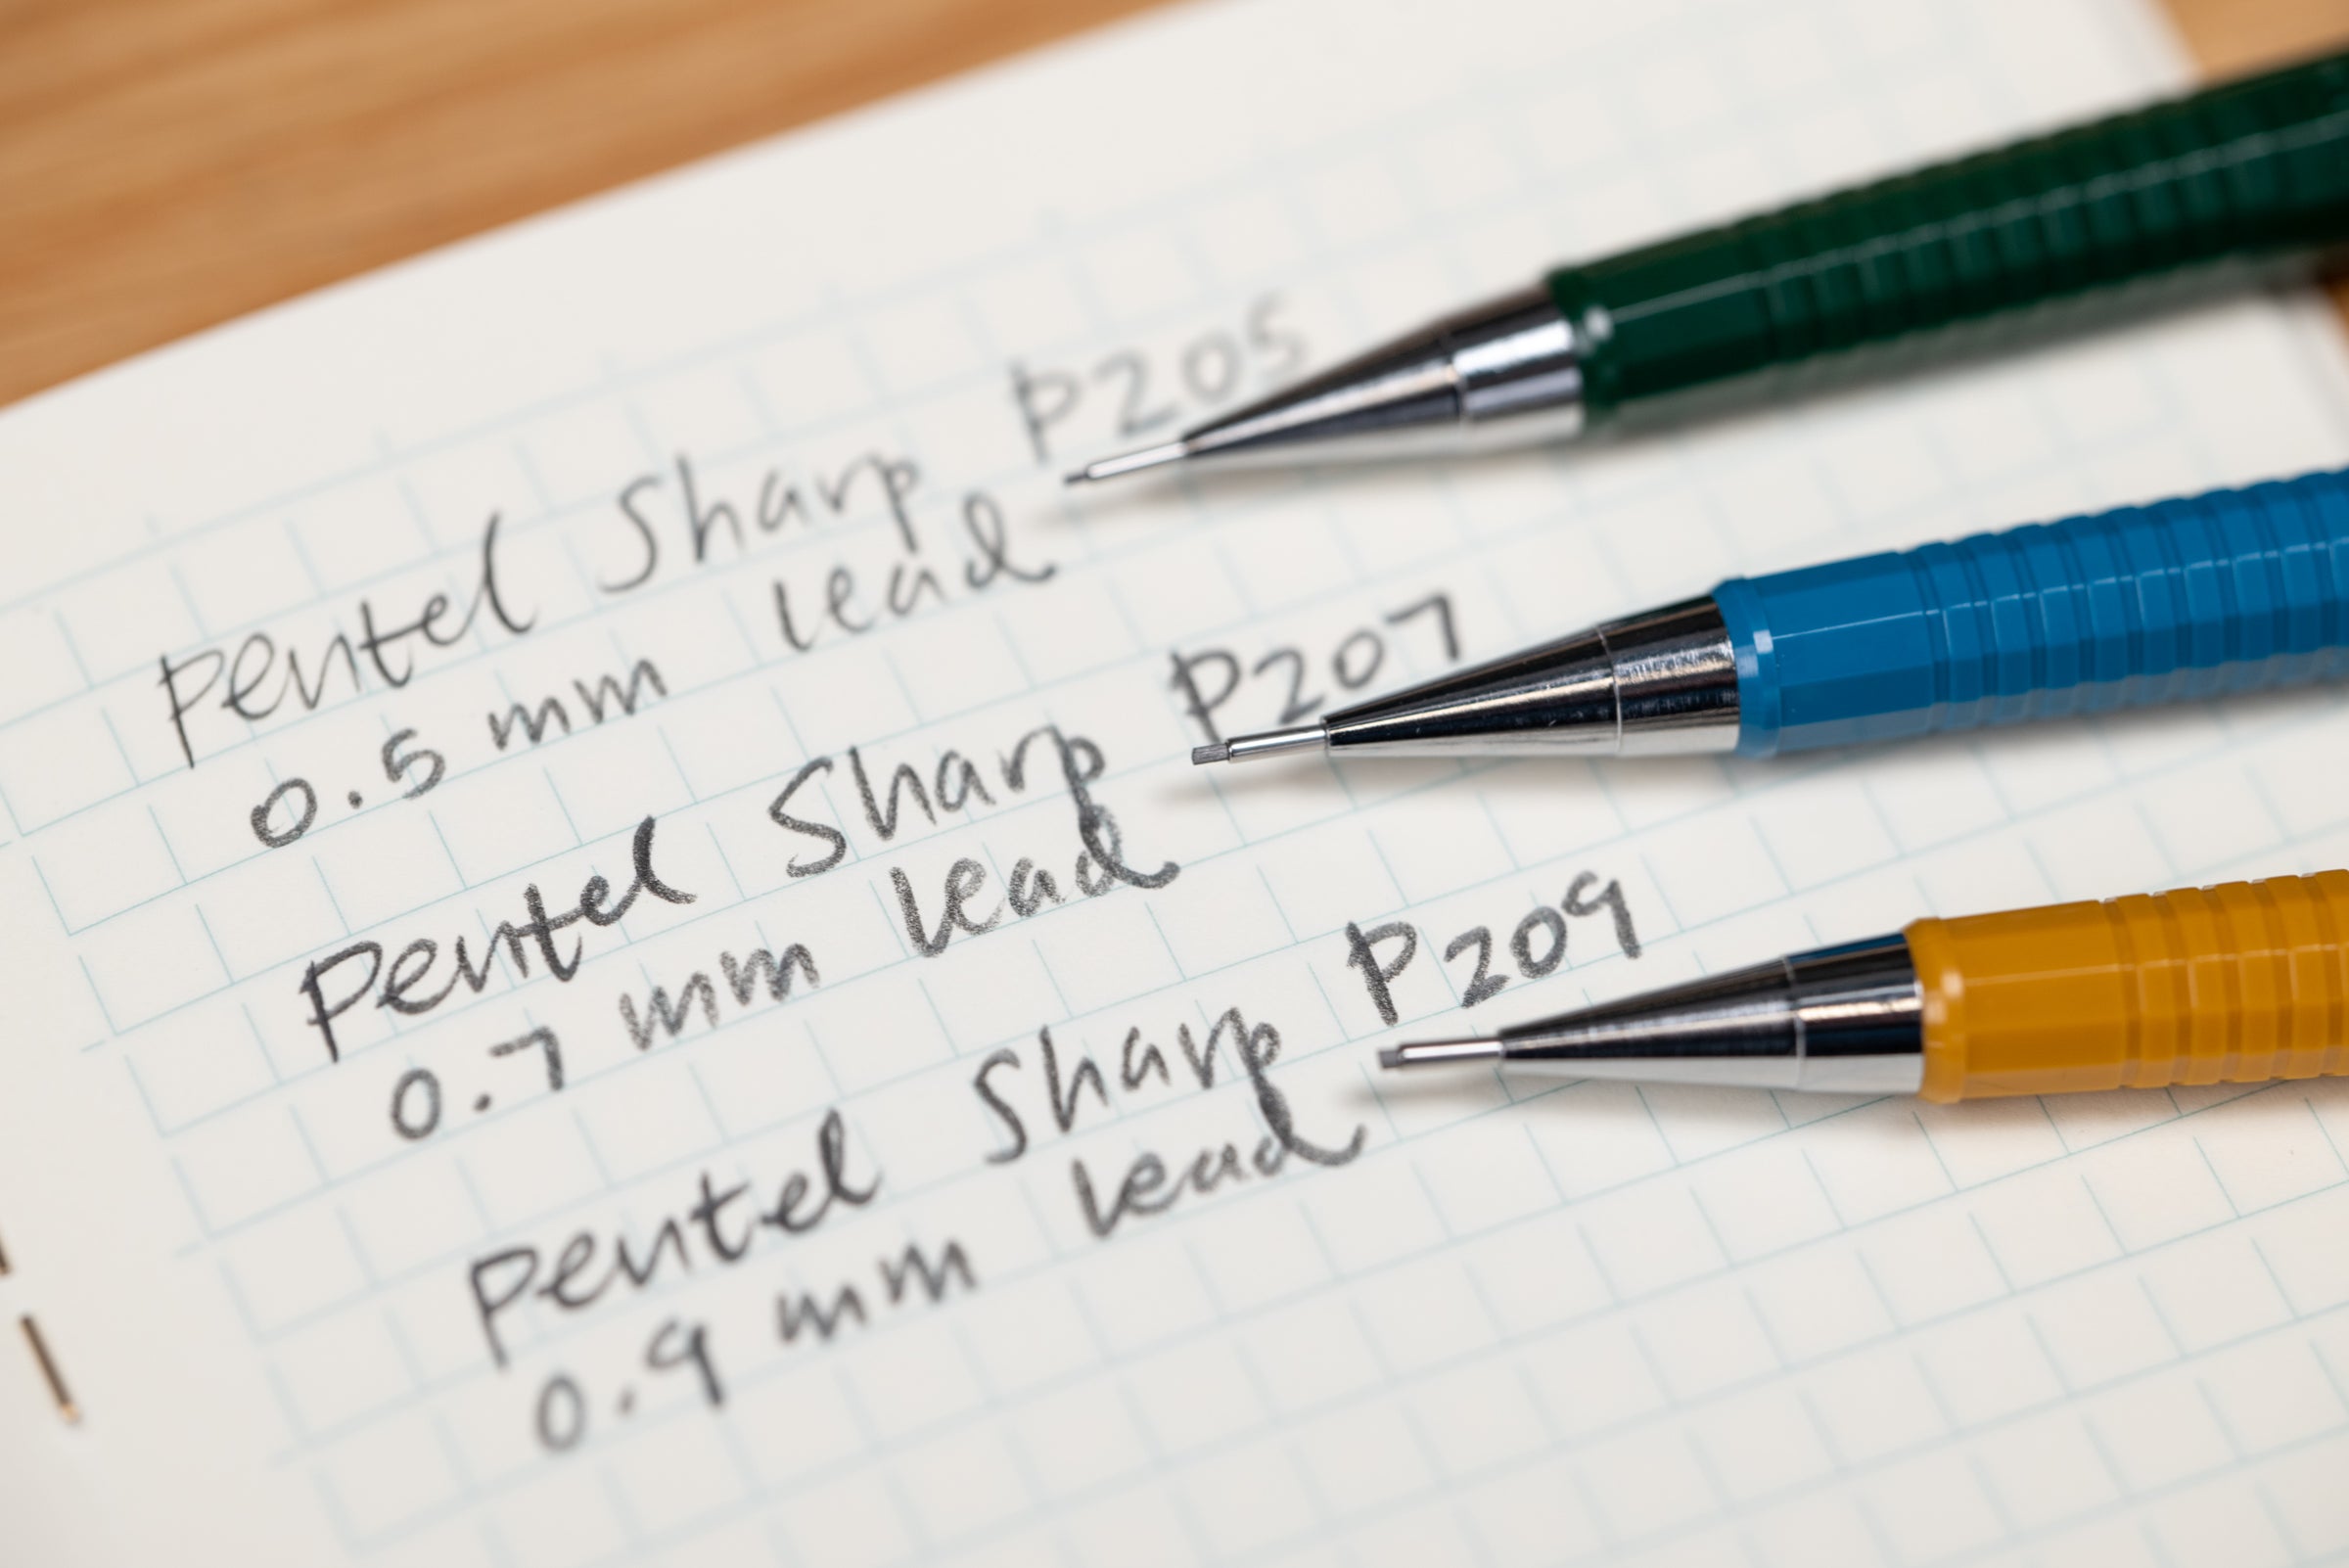 Pentel Sharp P205
0.5 mm lead
Pentel Sharp P207
0.7 mm lead
Pentel Sharp P209
0.9 mm lead